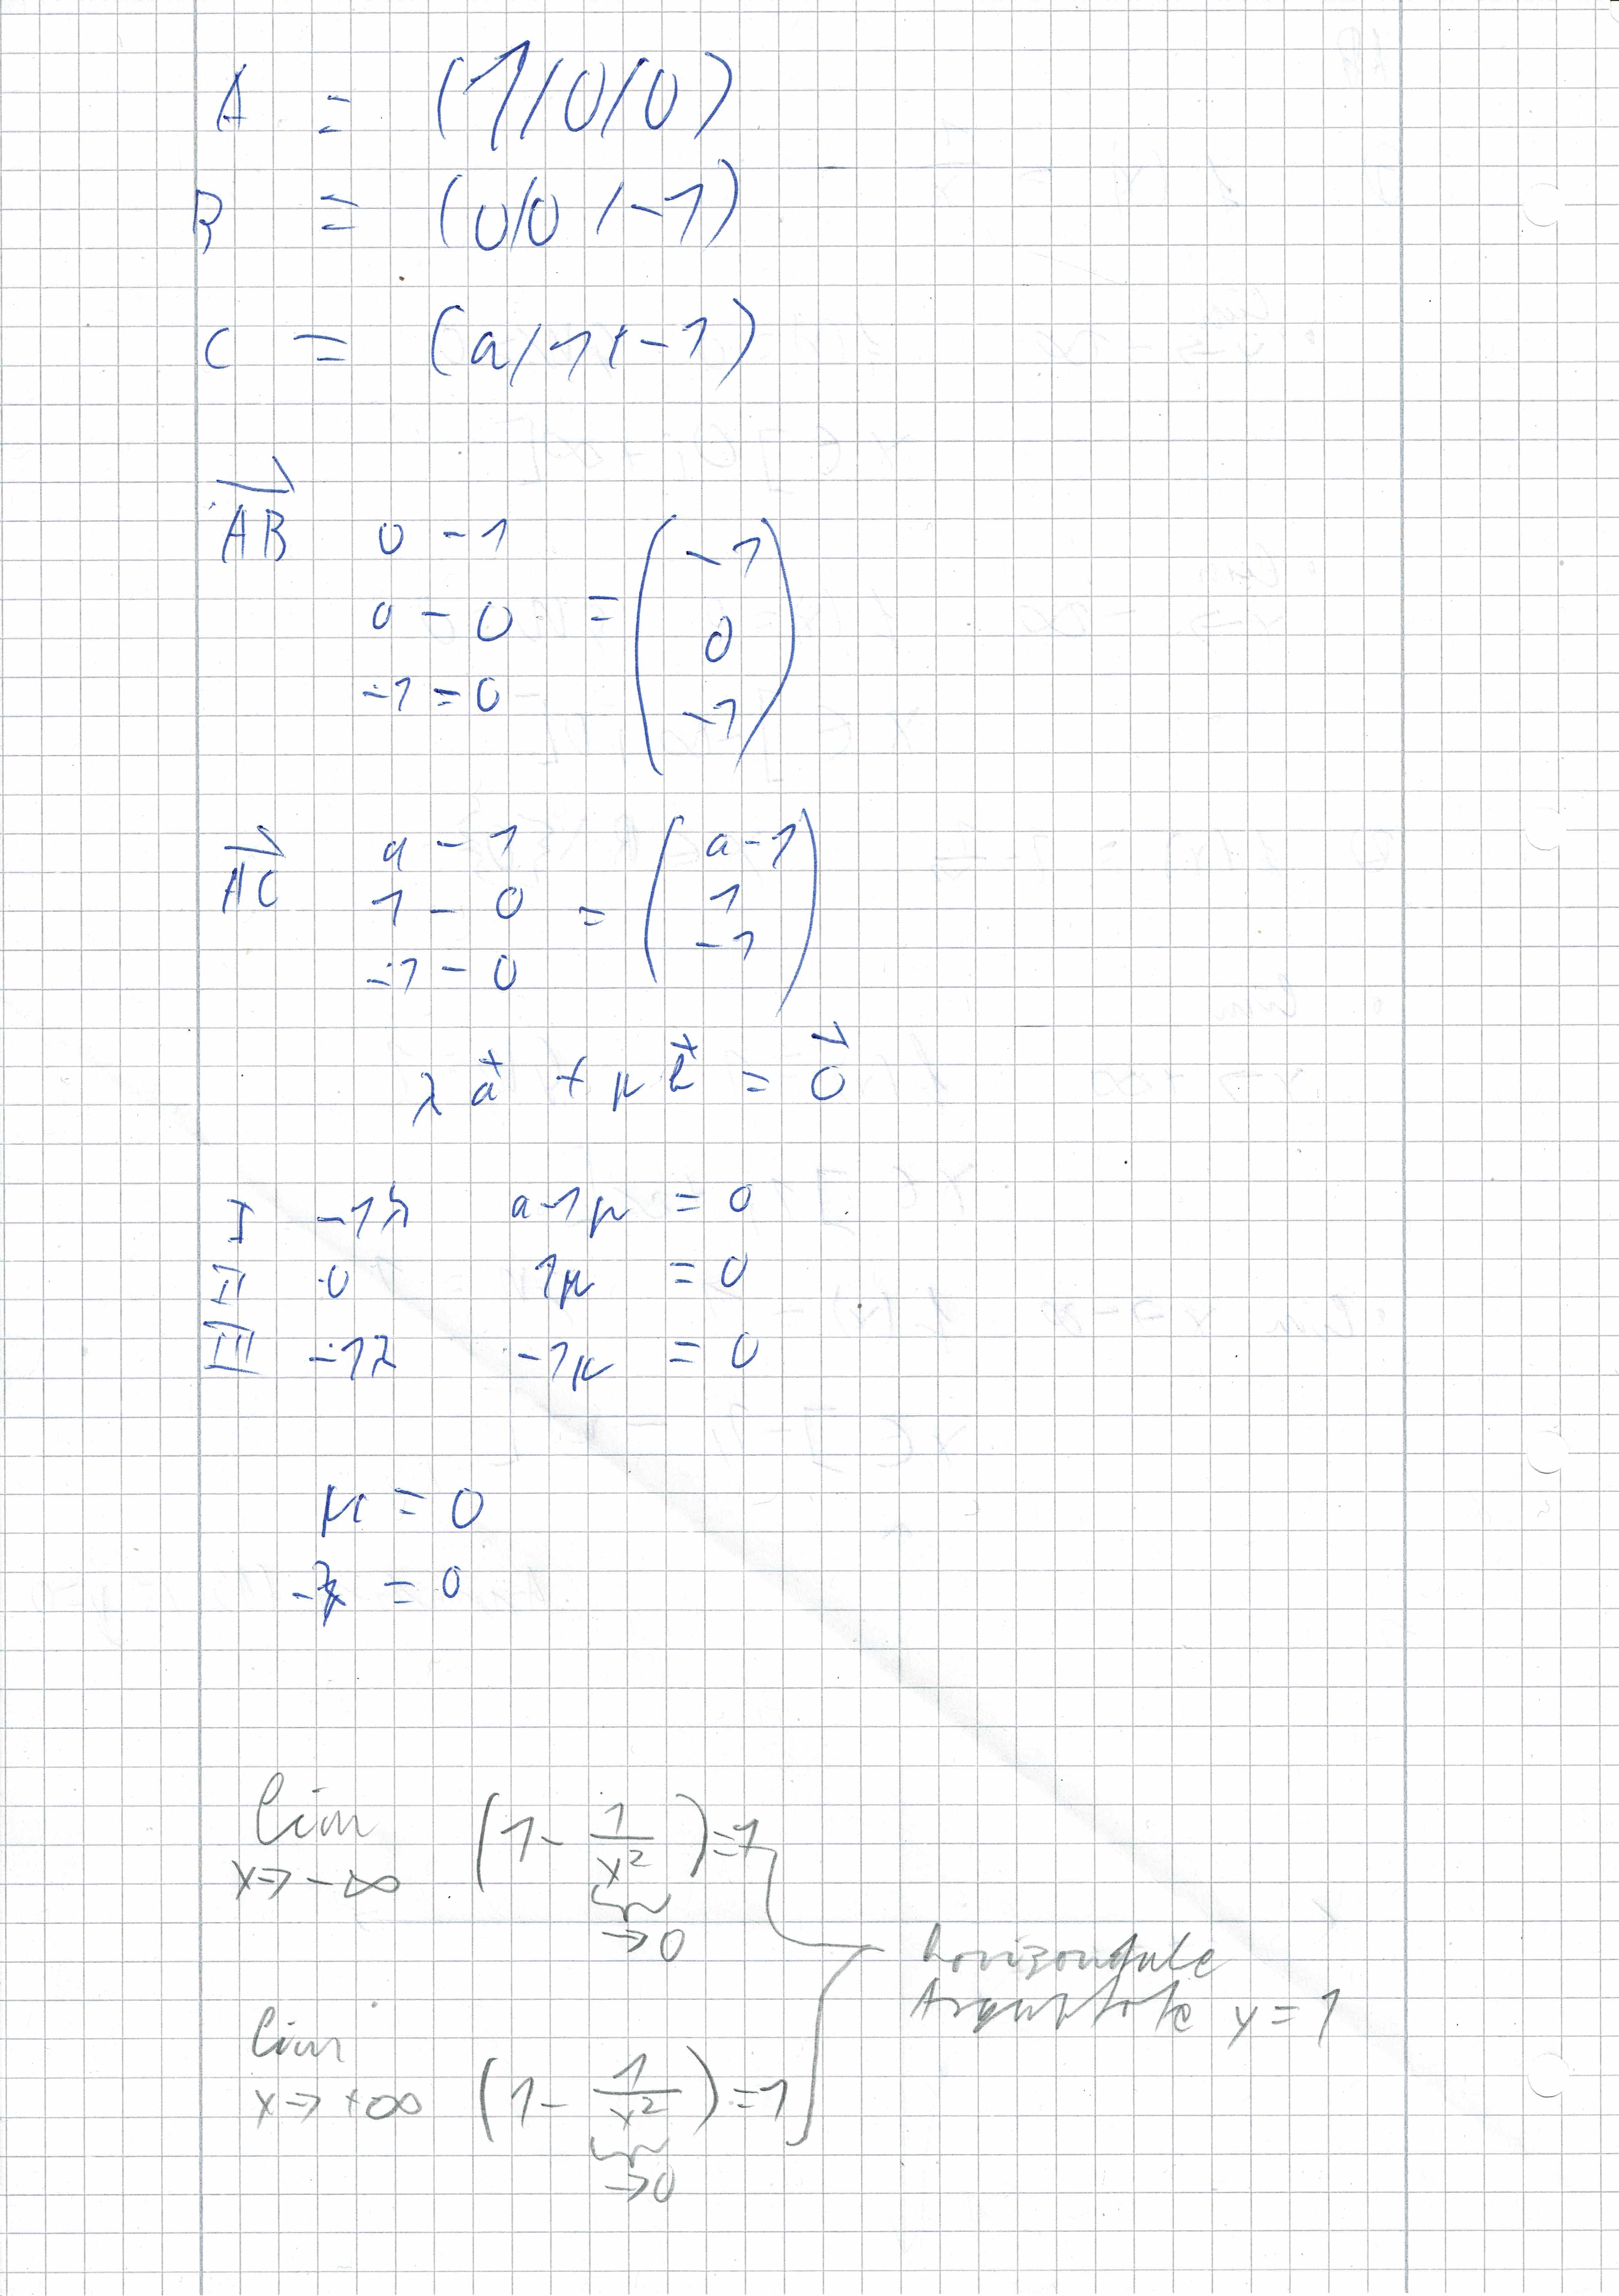 A = (1/0/0)
B = (0/0/-1)
C = (a/1/-1)
AB 0 - 1 -1
0 - 0 = 0
-1 = 0 -1
AC a - 1 a-1
1 - 0 = 1
-1 - 0 -1
λ a + μ b = 0
I -1λ a-1μ = 0
II 0 1μ = 0
III -1λ -1μ = 0
μ = 0
-λ = 0
lim (1 - 1/x²) = 1
x → -∞ → 0
horizontale
Asymptote y = 1
lim (1 - 1/x²) = 1
x → +∞ → 0